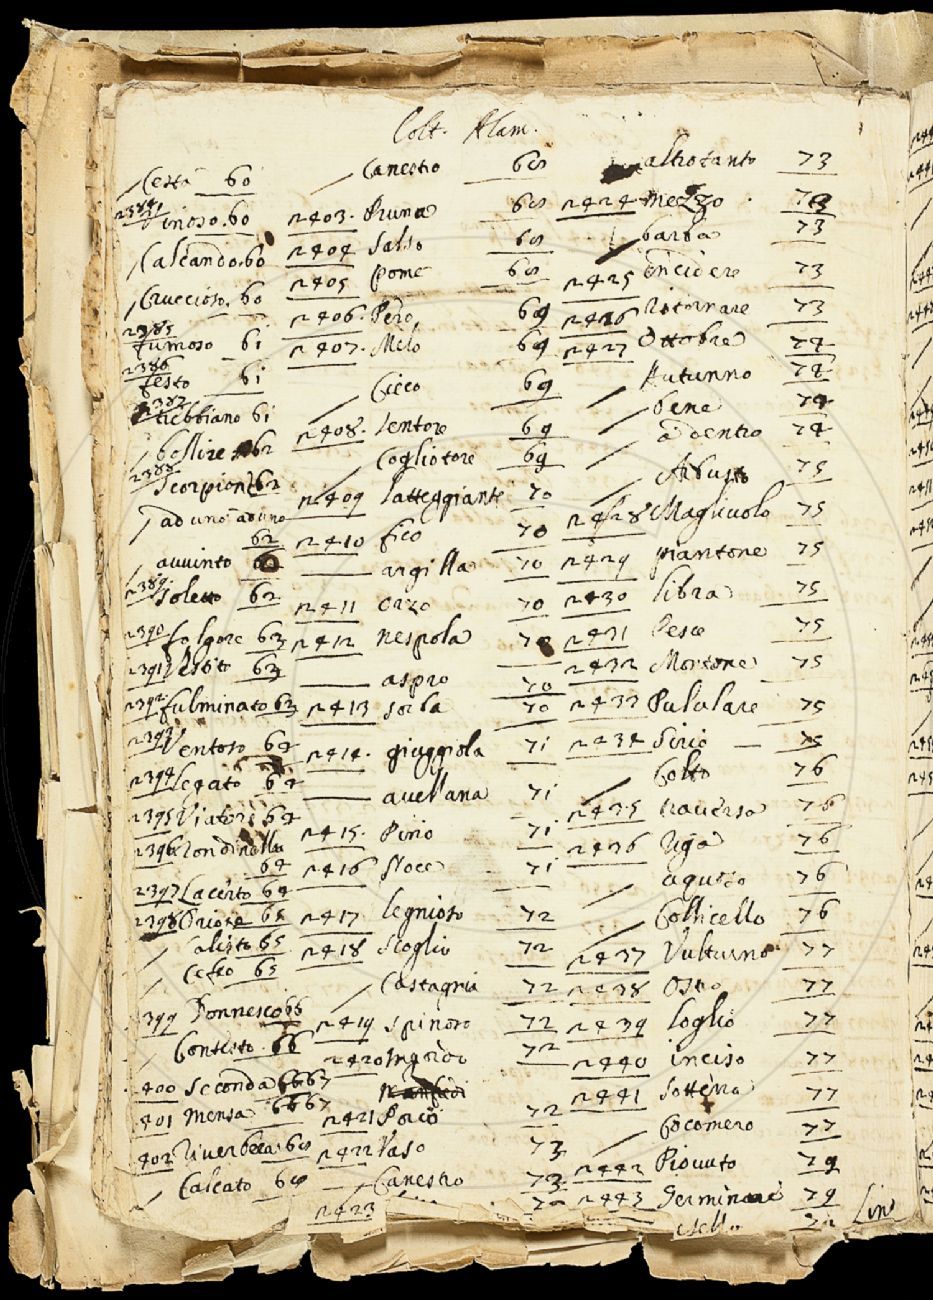 Colt. Alam.
Cesta 60
2384 Vinoso. 60
Calcando. 60
Cruccioso. 60
2385 fumoso 61
2386 festo 61
2387 trebbiano 61
bollire 62
2388 Scorpione 62
ad uno ad uno 62
auuinto
2389 Soletto 62
2390 folgore 63
2391 Vestito 63
2392 fulminato 63
2393 Ventoso 64
2394 legato 64
2395 Viatore 64
2396 rondinella 64
2397 Lacerto 64
2398 65
65
Cetro 65
399 Donnesco 66
Contesto. 66
400 Seconda 66 67
401 Mensa 66 67
402 Riverbera
Calcato
Canestro 68
2403. Pruna 68
2404 Salso 68
2405 Pome 68
2406. Pero 69
2407. Melo 69
Cieco 69
2408. Sentore 69
Coglitore 69
2409 latteggiante 70
2410 fico 70
argilla 70
2411 orzo 70
2412 nespola 70
aspro 70
2413 sorba 70
2414. giuggiola 71
avellana 71
2415. Pino 71
2416 Noce 71
2417 legnioso 72
2418 Scoglio 72
Castagnia 72
2419 Spinoso 72
2420 Ingordo 72
2421 72
2422 Vaso 73
Canestro 73
2423
altrotanto 73
2424 Mezzo. 73
barba 73
2425 Incidere 73
2426 Ritornare 73
2427 Ottobre 74
Autunno 74
bene 74
a dentro 74
Arbusto 75
2428 Magliuolo 75
2429 piantone 75
2430 libra 75
2431 Pesce 75
2432 Montone 75
2433 Pululare 75
2434 Sirio 75
Colto 76
2435 traverso 76
2436 riga 76
aguzzo 76
Collicello 76
2437 Vulturno 77
2438 Ostro 77
2439 loglio 77
2440 inciso 77
2441 Sotterra 77
Cocomero 77
2442 Piovuto 79
2443 Germinare 79
Lino